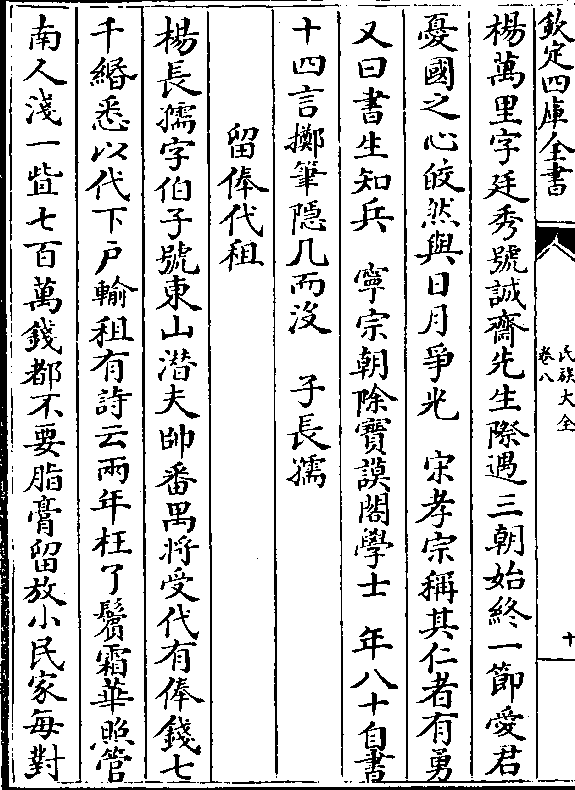 欽定四庫全書
氏族大全
卷八
十
楊萬里字廷秀號誠齋先生際遇三朝始終一節愛君
憂國之心皎然與日月爭光　宋孝宗稱其仁者有勇
又曰書生知兵　寧宗朝除寶謨閣學士　年八十自書
十四言擲筆隠几而沒　子長孺
留俸代租
楊長孺字伯子號東山潛夫帥番禺將受代有俸錢七
千緡悉以代下戶輸租有詩云兩年枉了鬢霜華照管
南人淺一些七百萬錢都不要脂膏留放小民家每對